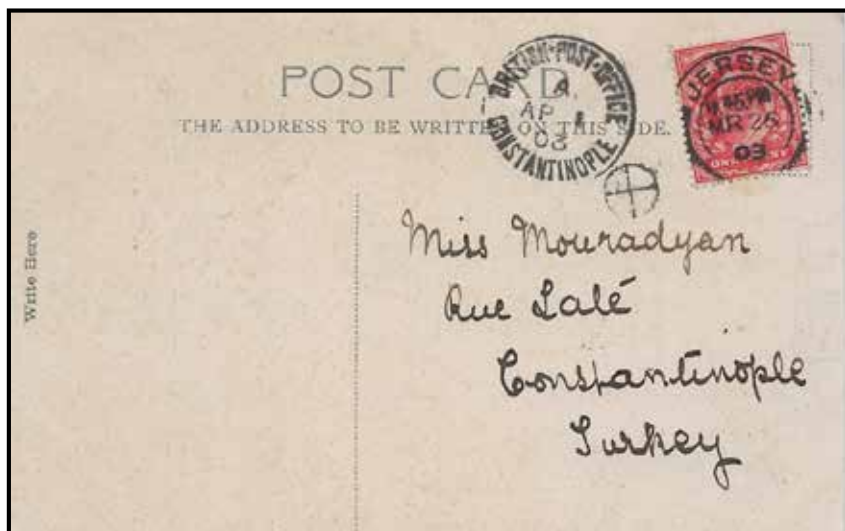 POST CARD
THE ADDRESS TO BE WRITTEN ON THIS SIDE.
BRITISH·POST·OFFICE
A
AP 1
03
CONSTANTINOPLE
JERSEY
MR 26
03
ONE
Write Here
Miss Mouradyan
Rue Lalé
Constantinople
Turkey